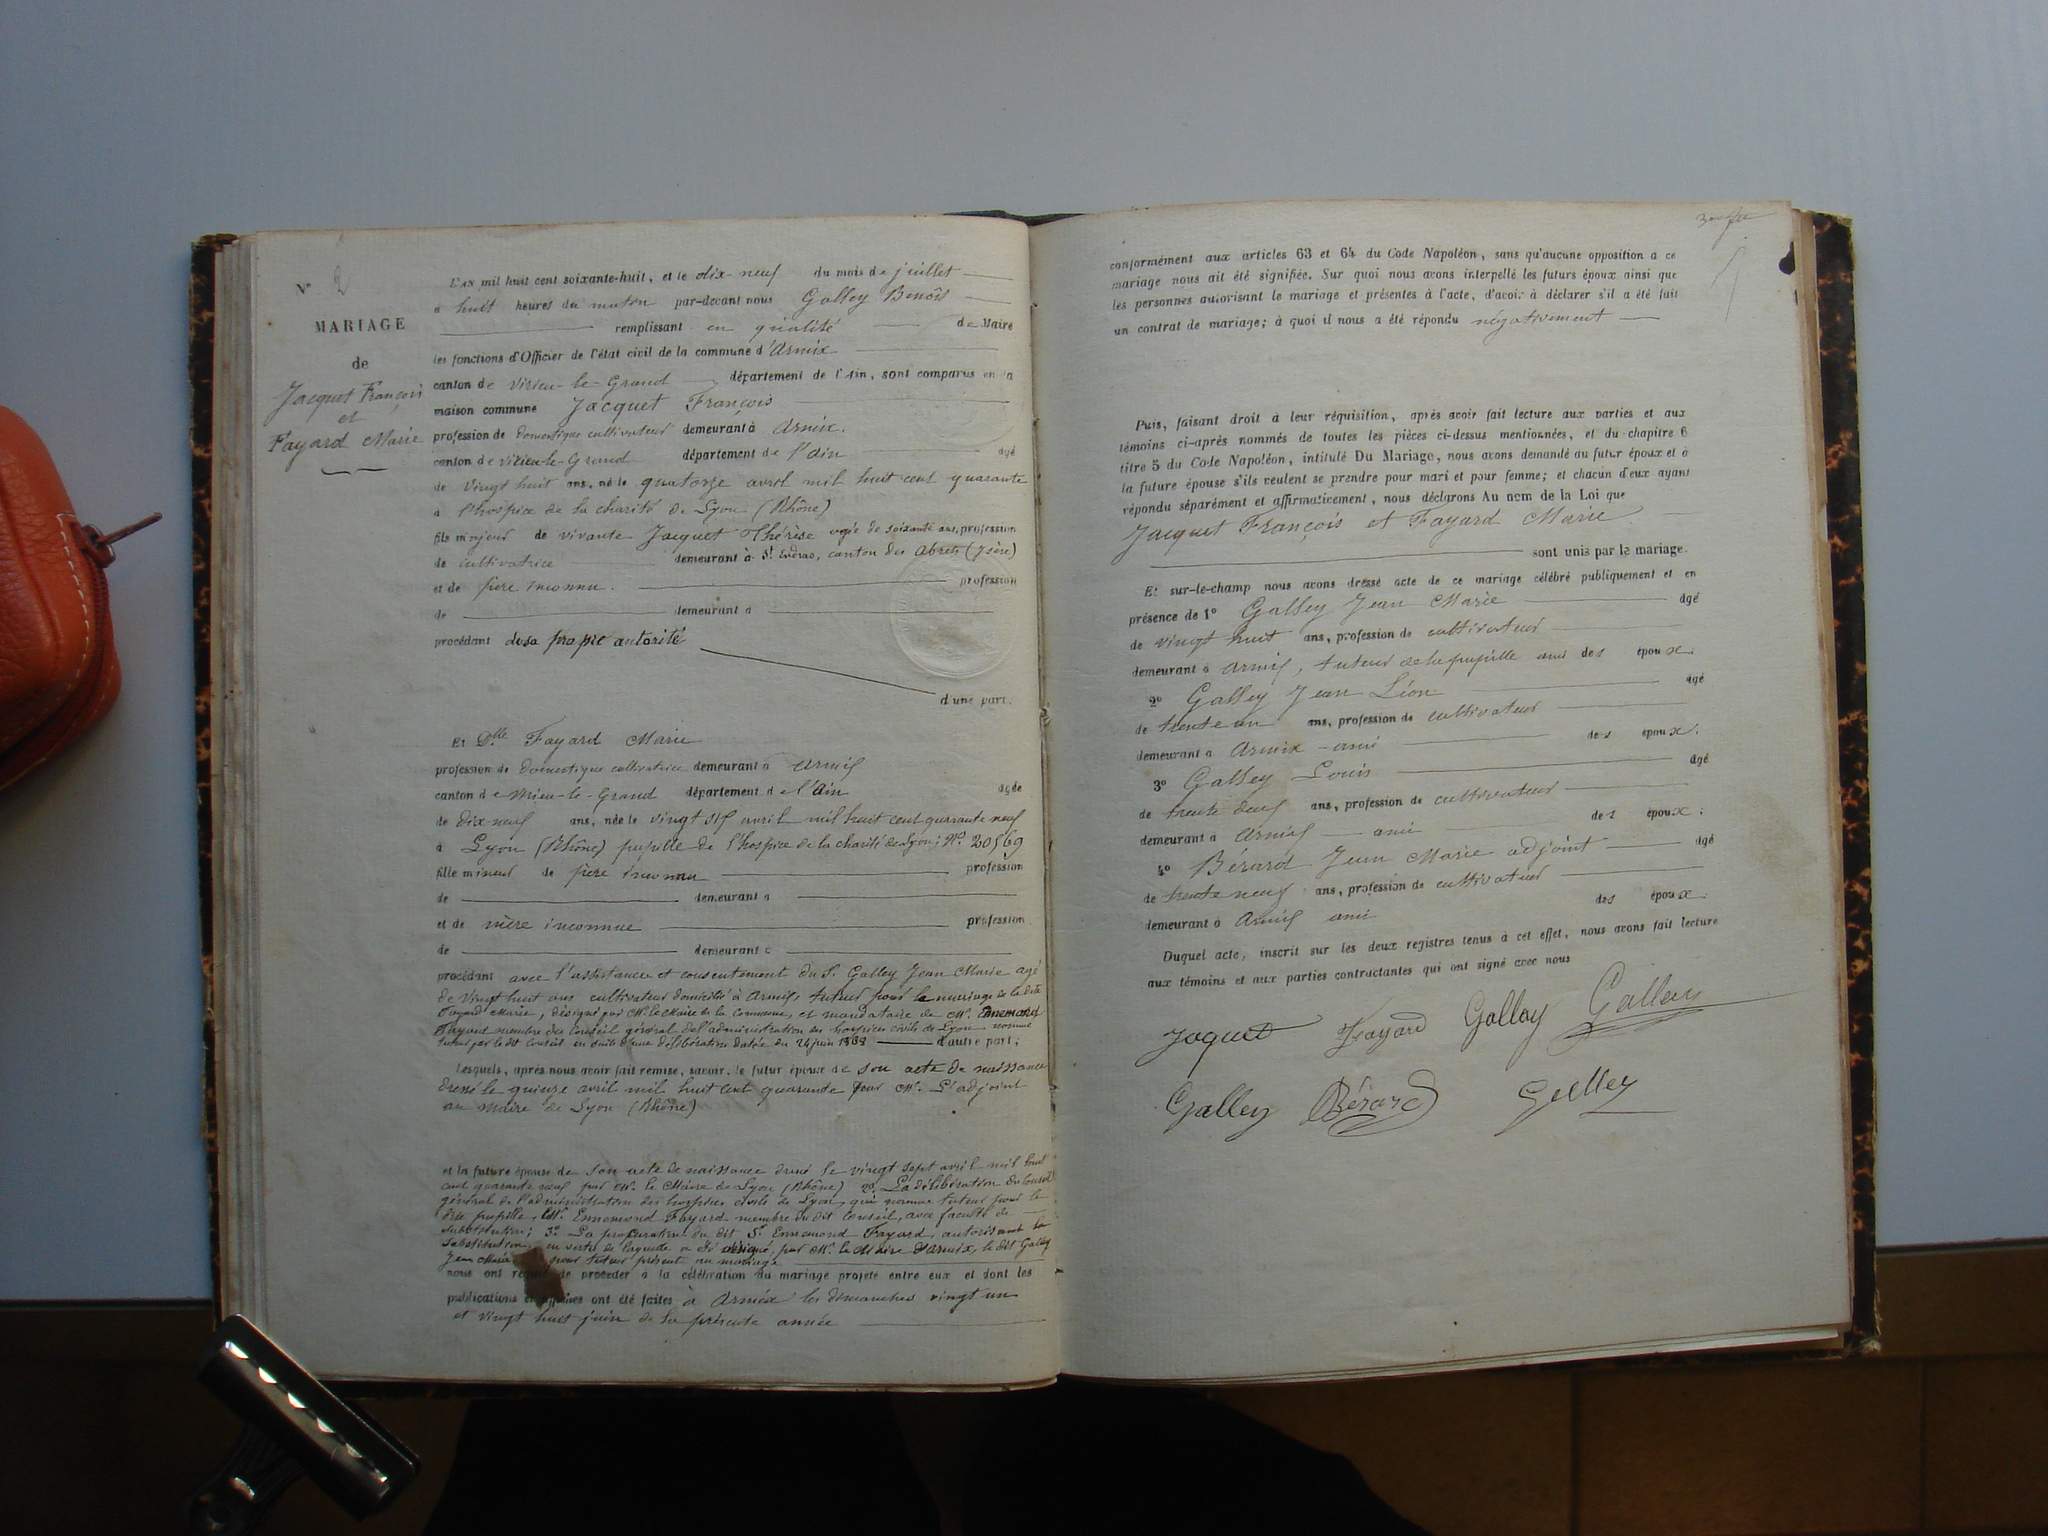 N° 2
MARIAGE
de
Jacquet François
et
Fayard Marie
L'AN mil huit cent soixante-huit, et le dix-neuf du mois de juillet
à huit heures du matin par-devant nous Galley Benoît
remplissant en qualité de Maire
les fonctions d'Officier de l'état civil de la commune d'Armix
canton de Virieu-le-Grand département de l'Ain, sont comparus en la
maison commune Jacquet François
profession de domestique cultivateur demeurant à Armix.
canton de Virieu-le-Grand département de l'Ain âgé
de vingt huit ans, né le quatorze avril mil huit cent quarante
à l'hospice de la charité de Lyon (Rhône)
fils majeur de vivante Jacquet Thérèse agée de soixante ans, profession
de cultivatrice demeurant à St canton des Abrets (Isère)
et de père inconnu. profession
de demeurant à
procédant de sa propre autorité
d'une part.
Et Dlle Fayard Marie
profession de domestique cultivatrice demeurant à Armix
canton de Virieu-le-Grand département de l'Ain âgée
de dix neuf ans, née le vingt six avril mil huit cent quarante neuf
à Lyon (Rhône) pupille de l'hospice de la charité de Lyon; N° 20569
fille mineur de père inconnu profession
de demeurant à
et de mère inconnue profession
de demeurant à
procédant avec l'assistance et consentement du S. Galley Jean Marie agé
de vingt huit ans cultivateur domicilié à Armix, tuteur pour le mariage de la dite
Fayard Marie, désigné par Mr. le Maire de la Commune, et mandataire de Mr. Ennemond
Fayard membre du Conseil général de l'administration des hospices civils de Lyon nommé
tuteur par le dit Conseil en suite d'une délibération datée du 24 juin 1868 d'autre part;
Lesquels, après nous avoir fait remise, savoir, le futur époux de son acte de naissance
dressé le quinze avril mil huit cent quarante par Mr. L'adjoint
au Maire de Lyon (Rhône)
et la future épouse de son acte de naissance dressé le vingt sept avril mil huit
cent quarante neuf par Mr. le Maire de Lyon (Rhône) 2°. La délibération du Conseil
général de l'administration des hospices civils de Lyon, qui nomme tuteur pour la
dite pupille, Mr. Ennemond Fayard membre du dit Conseil, avec faculté de
substitution; 3°. La procuration du dit Sr. Ennemond Fayard, autorisant la
substitution en vertu de laquelle a été désigné, par Mr. le Maire d'Armix, le dit Galley
Jean Marie pour tuteur présent au mariage
nous ont requis de procéder à la célébration du mariage projeté entre eux et dont les
publications et affiches ont été faites à Armix les dimanches vingt un
et vingt huit juin de la présente année
conformément aux articles 63 et 64 du Code Napoléon, sans qu'aucune opposition à ce
mariage nous ait été signifiée. Sur quoi nous avons interpellé les futurs époux ainsi que
les personnes autorisant le mariage et présentes à l'acte, d'avoir à déclarer s'il a été fait
un contrat de mariage; à quoi il nous a été répondu négativement
Puis, faisant droit à leur réquisition, après avoir fait lecture aux parties et aux
témoins ci-après nommés de toutes les pièces ci-dessus mentionnées, et du chapitre 6
titre 5 du Code Napoléon, intitulé Du Mariage, nous avons demandé au futur époux et à
la future épouse s'ils veulent se prendre pour mari et pour femme; et chacun d'eux ayant
répondu séparément et affirmativement, nous déclarons Au nom de la Loi que
Jacquet François et Fayard Marie
sont unis par le mariage.
Et sur-le-champ nous avons dressé acte de ce mariage célébré publiquement et en
présence de 1° Galley Jean Marie âgé
de vingt huit ans, profession de cultivateur
demeurant à Armix, tuteur de la pupille ami des époux.
2° Galley Jean Léon âgé
de trente un ans, profession de cultivateur
demeurant à Armix - ami des époux.
3° Galley Louis âgé
de trente deux ans, profession de cultivateur
demeurant à Armix - ami des époux;
4° Bérard Jean Marie adjoint âgé
de trente neuf ans, profession de cultivateur
demeurant à Armix ami des époux.
Duquel acte, inscrit sur les deux registres tenus à cet effet, nous avons fait lecture
aux témoins et aux parties contractantes qui ont signé avec nous
Jaquet Fayard Galley Galley
Galley Bérard Galley